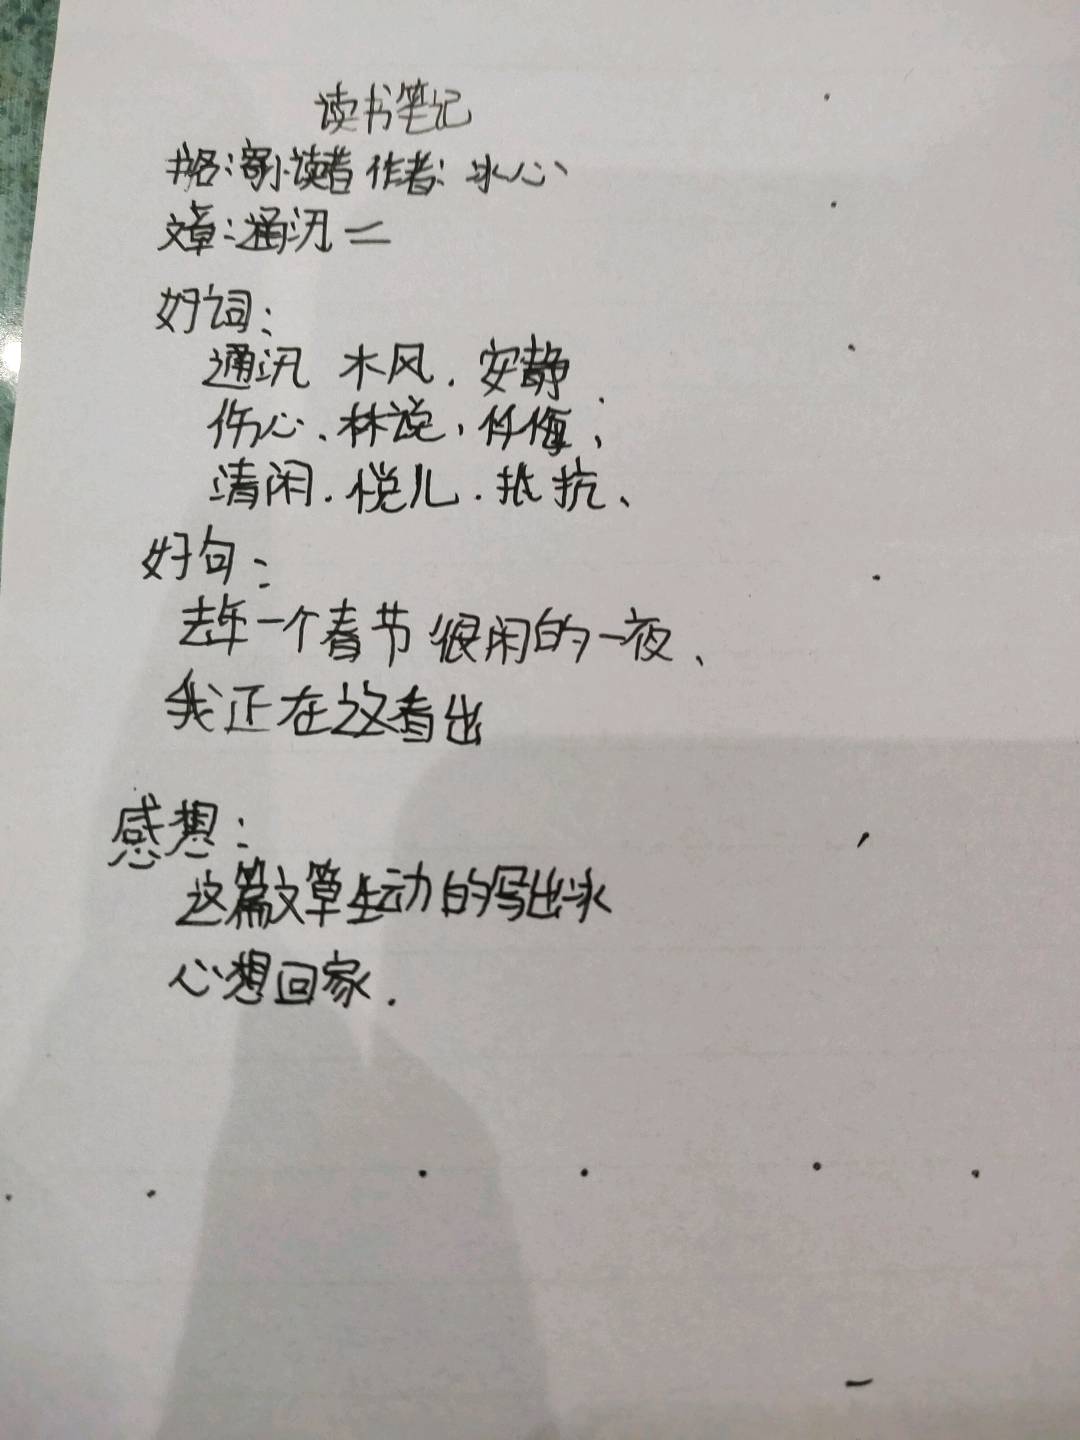 读书笔记
书名:寄小读者 作者:冰心
文章:通讯二
好词:
通讯 木风、安静
伤心、林说、忏悔、
清闲、悦儿、抵抗、
好句:
去年一个春节很闲的一夜、
我正在这看出
感想:
这篇文章生动的写出冰
心想回家.